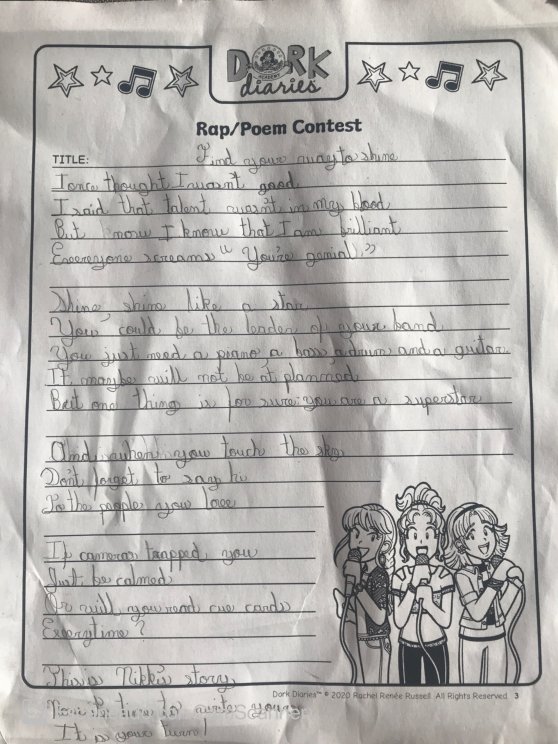 DORK
diaries
Rap/Poem Contest
TITLE: Find your way to shine
I once thought I wasn't good
I said that talent wasn't in my blood
But now I know that I am brilliant
Everyone screams "You're genial"
Shine, shine like a star
You could be the leader of your band
You just need a piano a bass, a drum and a guitar
It maybe will not be at planned
But one thing is for sure: you are a superstar
And when you touch the sky
Don't forget to say hi
To the people you love
If cameras trapped you
Just be calmed
Or will you read cue cards
Everytime?
This is Nikki's story
Now it's time to write yours
It is your turn!
Dork Diaries™ © 2020 Rachel Renée Russell. All Rights Reserved. 3
Scanner